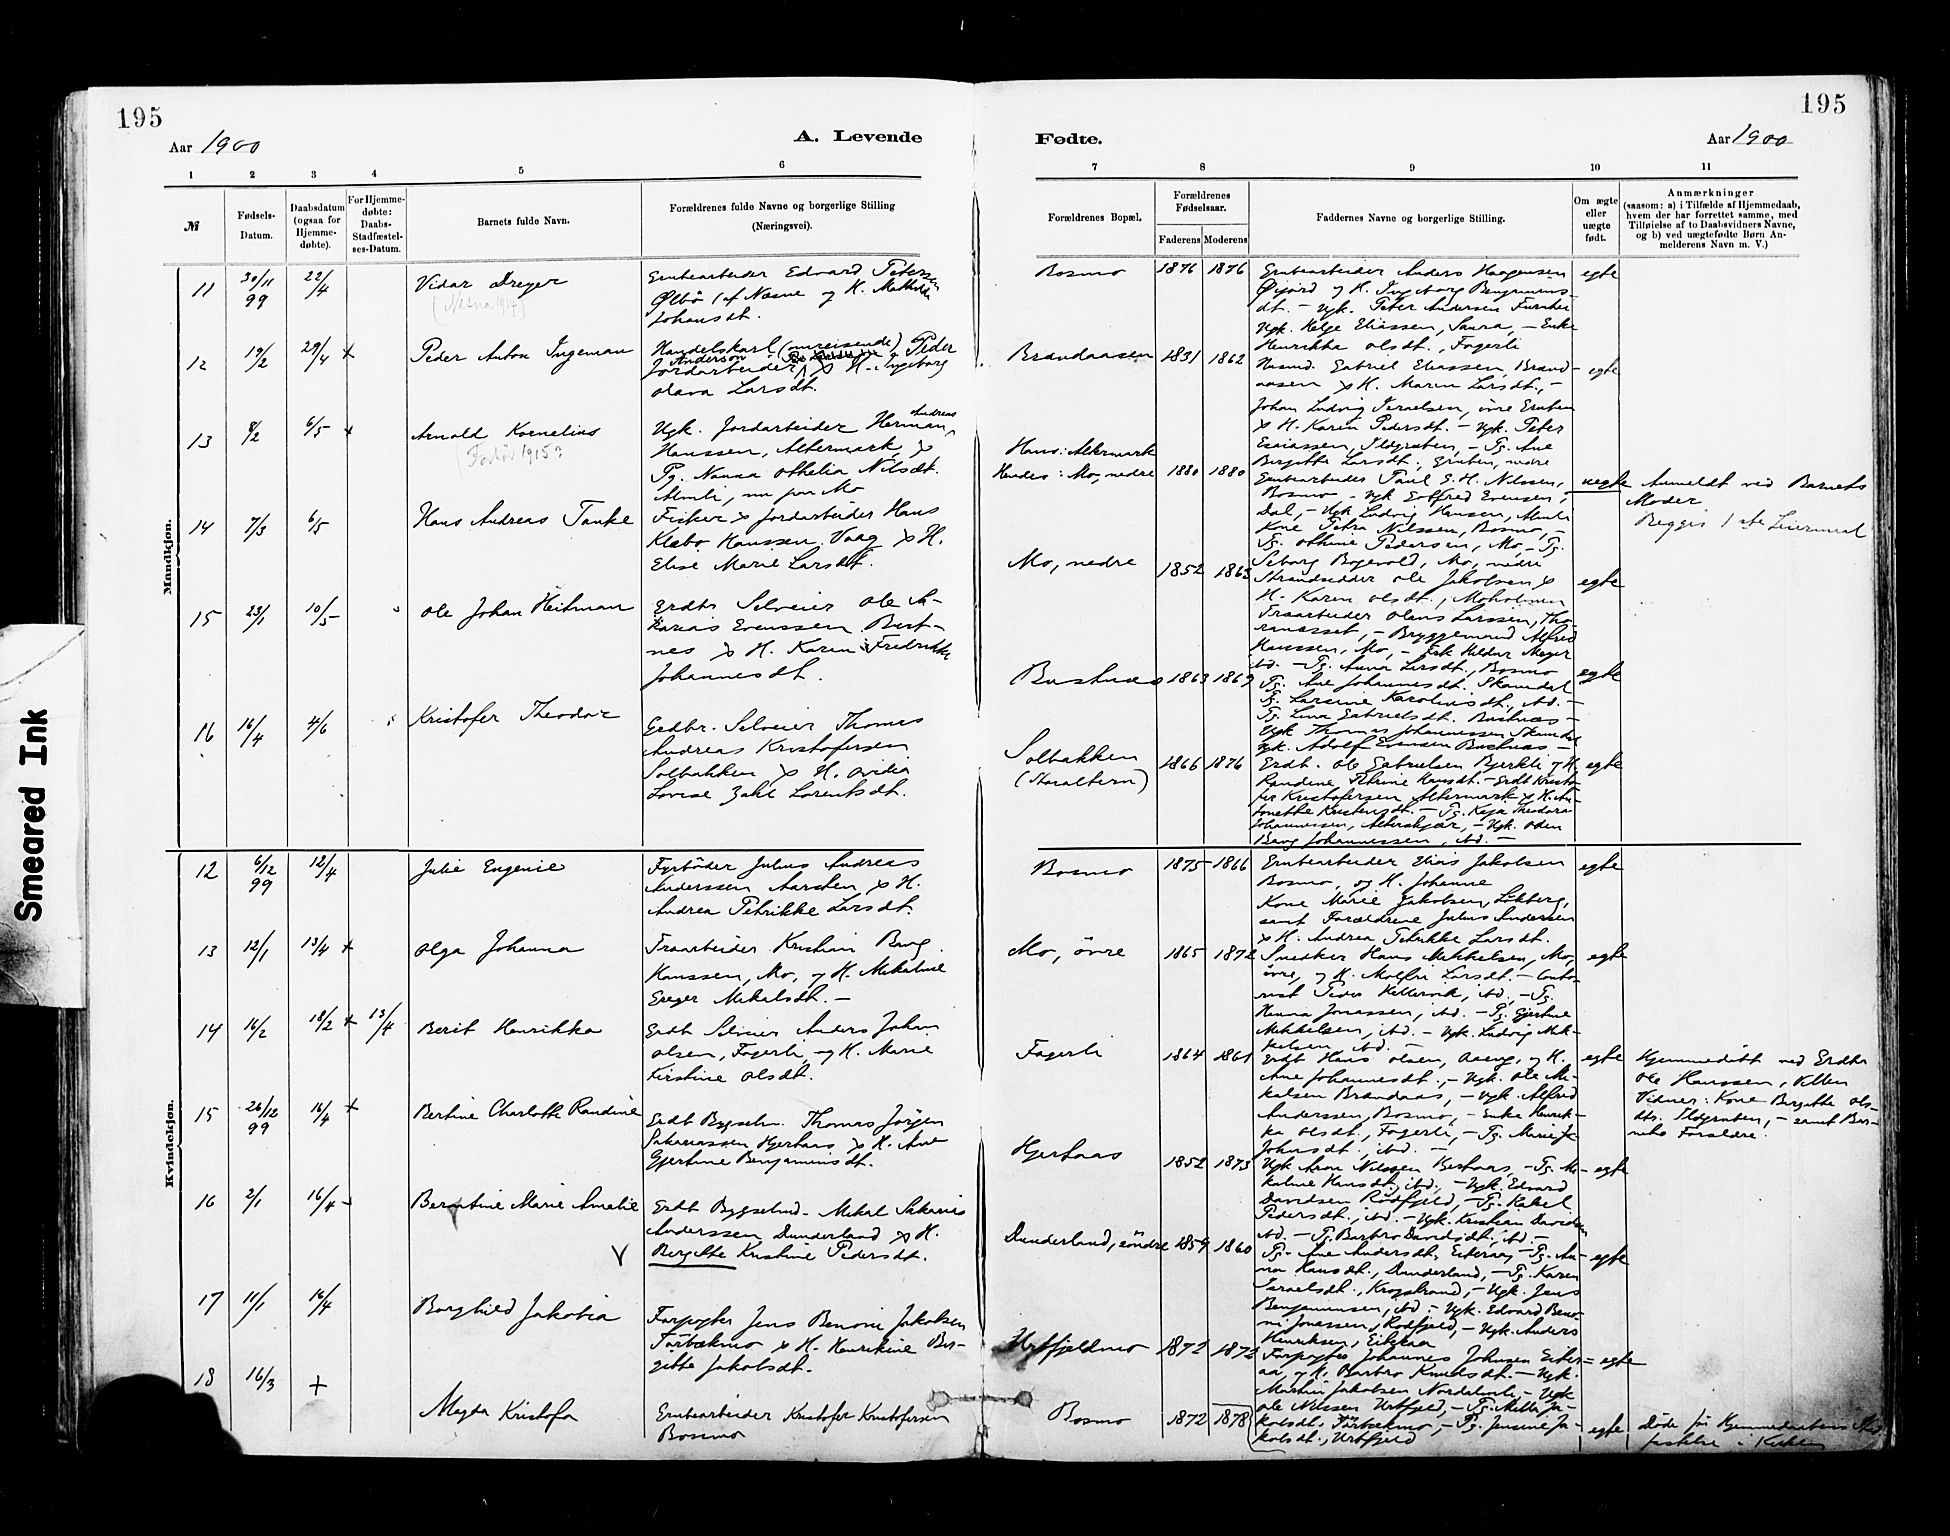 195
Aar 1900
A. Levende
1 2 3 4 5 6
№
Fødsels-
Datum.
Daabsdatum
(ogsaa for
Hjemme-
døbte).
For Hjemme-
døbte:
Daabs-
Stadfæstel-
ses-Datum.
Barnets fulde Navn.
Forældrenes fulde Navne og borgerlige Stilling
(Næringsvei).
Mandkjøn.
11 30/11 99 22/4 Vidar Dreyer
Grubearbeider Edvard Petersen
Ølbö 1 af Næsne og H. Mathilde
Johansdt.
12 19/2 29/4 + Peder Anton Ingeman
Handelskarl (omreisende) Peder
Anderson
Jordarbeider H. Ingeborg
Olava Larsdt.
13 8/2 6/5 + Arnold Kornelius
Ugk. Jordarbeider Herman Andreas
Hanssen, Altermark, &
Pg. Nanna Othelia Nilsdt.
Almli, nu paa Mo
14 7/3 6/5 Hans Andreas Tanke
Fisker & Jordarbeider Hans
Klæbo Hanssen Vaag & H.
Elise Marie Larsdt.
15 23/1 10/5 Ole Johan Heitman
Grdbr Selveier Ole Sa-
karias Evenssen Bust-
nes & H. Karen Fredrikke
Johannesdt.
16 16/4 4/6 Kristofer Theodor
Grdbr. Selveier Thomas
Andreas Kristofersen
Solbakken & H. Ovidia
Lovise Zahl Lorentsdt.
Kvindekjøn.
12 6/12 99 12/4 Julie Eugenie
Fyrböder Julius Andreas
Anderssen Aarsten, & H.
Andrea Petrikke Larsdt.
13 12/1 13/4 + Olga Johanna
Traarbeider Kristian Bang
Hanssen, Mo, og H. Mekaline
Greger Mekalsdt. —
14 16/2 18/2 + 13/4 Berit Henrikka
Grdbr Selveier Anders Johan
Olsen, Fagerli, og H. Marie
Kirstine Olsdt.
15 26/12 99 16/4 + Bertine Charlotte Randine
Grdbr Bygselm. Thomas Jörgen
Sakariassen Hjertaas & H. Ane
Gjertine Benjaminsdt.
16 2/1 16/4 - Berntine Marie Amelie
Grdbr Bygselmd. Mekal Sakarias
Anderssen Dunderland & H.
Bergitte Kristine Pedersdt.
17 11/1 16/4 Borghild Jakobia
Forpagter Jens Benoni Jakobsen
Förbækmo & H. Henrikine Ber-
gitte Jakobsdt.
18 16/3 + Magda Kristofa
Grubearbeider Kristofer Kristofersen
Bosmo
195
Fødte.
Aar 1900
7 8 9 10 11
Forældrenes Bopæl.
Forældrenes
Fødselsaar.
Faderens Moderens
Faddernes Navne og borgerlige Stilling.
Om ægte
eller
uægte
født.
Anmærkninger
(saasom: a) i Tilfælde af Hjemmedaab,
hvem der har forrettet samme, med
Tilføielse af to Daabsvidners Navne,
og b) ved uægtefødte Børn An-
melderens Navn m. V.)
Bosmo 1876 1876
Grubearbeider Anders Haagensen
Øijord og H. Ingeborg Benjamins-
dt. — Ugk. Peter Andersen
Ugk. Helge Eliassen, Saura, — Enke
Henrikka Olsdt., Fagerli
egte
Brandaasen 1831 1862
Husmd. Gabriel Eliassen, Brand-
aasen & H. Maren Larsdt., —
Johan Ludvig Israelsen, övre Gruben
& H. Karen Pedersdt. — Ugk. Peter
Esaiassen, Ildgruben, — Pg. Ane
Birgitte Larsdt., Gruben, nedre
egte
Hans: Altermark
Hendes: Mo, nedre 1880 1880
Grubearbeider Paul E. H. Nilssen,
Bosmo — Ugk Gotfred Evensen,
Dal, — Ugk Ludvig Hansen, Almli
Kone Petra Nilssen, Bosmo, —
Pg. Othine Pedersen, Mo, — Pg.
Seborg Bogevold, Mo, nedre
uegte Anmeldt ved Barnets
Moder
Begges 1 ste Leiermaal
Mo, nedre 1852 1863
Strandsidder Ole Jakobsen &
H. Karen Olsdt., Moholmen
Traarbeider Olaus Larssen,
Bryggemand Alfred
Hanssen, Mo, — Frk Hildur Meyer
ibd. — Pg. Anna Larsdt., Bosmo
egte
Bustnæs 1863 1869
Pg. Ane Johannesdt. Skamdal
Pg. Larsine Karoliusdt., ibd. —
Pg. Lina Gabrielsdt. Bustnæs —
Ugk Thomas Johannessen Skamdal
Ugk. Adolf Evensen Bustnæs. —
egte
Solbakken
(Storalteren) 1866 1876
Grdbr. Ole Gabrielsen Bjerkli og H.
Randine Petrine Hansdt. — Grdbr Kristo-
fer Kristofersen Altermark & H. An-
tonette Kristensdt. — Pg. Kaja Theodora
Johannessen, Alterskjær, — Ugk. Oden
Bang Johannessen, ibd. —
egte
Bosmo 1875 1866
Grubearbeider Elias Jakobsen
Bosmo, og H. Johanne
Kone Marie Jakobsen,
samt Forældrene Julius Anderssen
& H. Andrea Petrikke Larsdt.
egte
Mo, övre 1865 1872
Snedker Hans Mekkelsen, Mo,
övre, og H. Molfri Larsdt. — Conto-
rist Peder ibd, — Pg.
Hanna Jonassen, ibd. — Pg. Gjertine
Mekkelsen, ibd. — Ugk. Ludvig Mek-
kelsen ibd. —
egte
Fagerli 1864 1861
Grdbr Hans Olsen, Aaeng, og H.
Ane Johannesdt., — Ugk. Ole Mi-
kalsen Brandaas, — Ugk. Alfred
Anderssen, Bosmo, — Enke Henrik-
ka Olsdt., Fagerli, — Pg. Marie
Johnsdt., ibd. —
egte Hjemmedöbt ved Grdbr
Ole Hanssen,
Vidner: Kone Bergitte Ols-
dtr. Ildgruben, — samt Bar-
nets Forældre.
Hjertaas 1852 1873
Ugk Aron Nilssen — Pg. Mi-
kaline Hansdt., ibd., — Ugk. Edvard
Davidsen Rödfjeld, — Pg. Rakel
Pedersdt., ibd. — Ugk. Kristian Davidsen
ibd. — Pg. Barbro Davidsdt., ibd. —
egte
Dunderland, söndre 1859 1860
Pg. Ane Andersdt., Eiteraa, — Pg. An-
na Hansdt., Dunderland, — Pg. Karen
Israelsdt., Krogstrand, — Ugk. Jens
Benjaminsen, ibd. — Ugk. Edvard Beno-
ni Jonassen, Rödfjeld, — Ugk. Anders
Henriksen, Eiteraa
egte
Urtfjeldmo 1872 1872
Forpagter Johannes Johnsen Eiter-
aa, og H. Barbro Knudsdt. — Ugk.
Martin Jakobsen Nordelimli, — Ugk
Ole Nilssen Urtfjeld, — Pg. Mette Ja-
kobsdt. Förbækmo, — Pg. Jensine Ja-
kobsdt., Urtfjeld
egte
Bosmo 1872 1878
egte Döde för Hjemmedaabens Stad-
fæstelse i Kirken
Smeared Ink